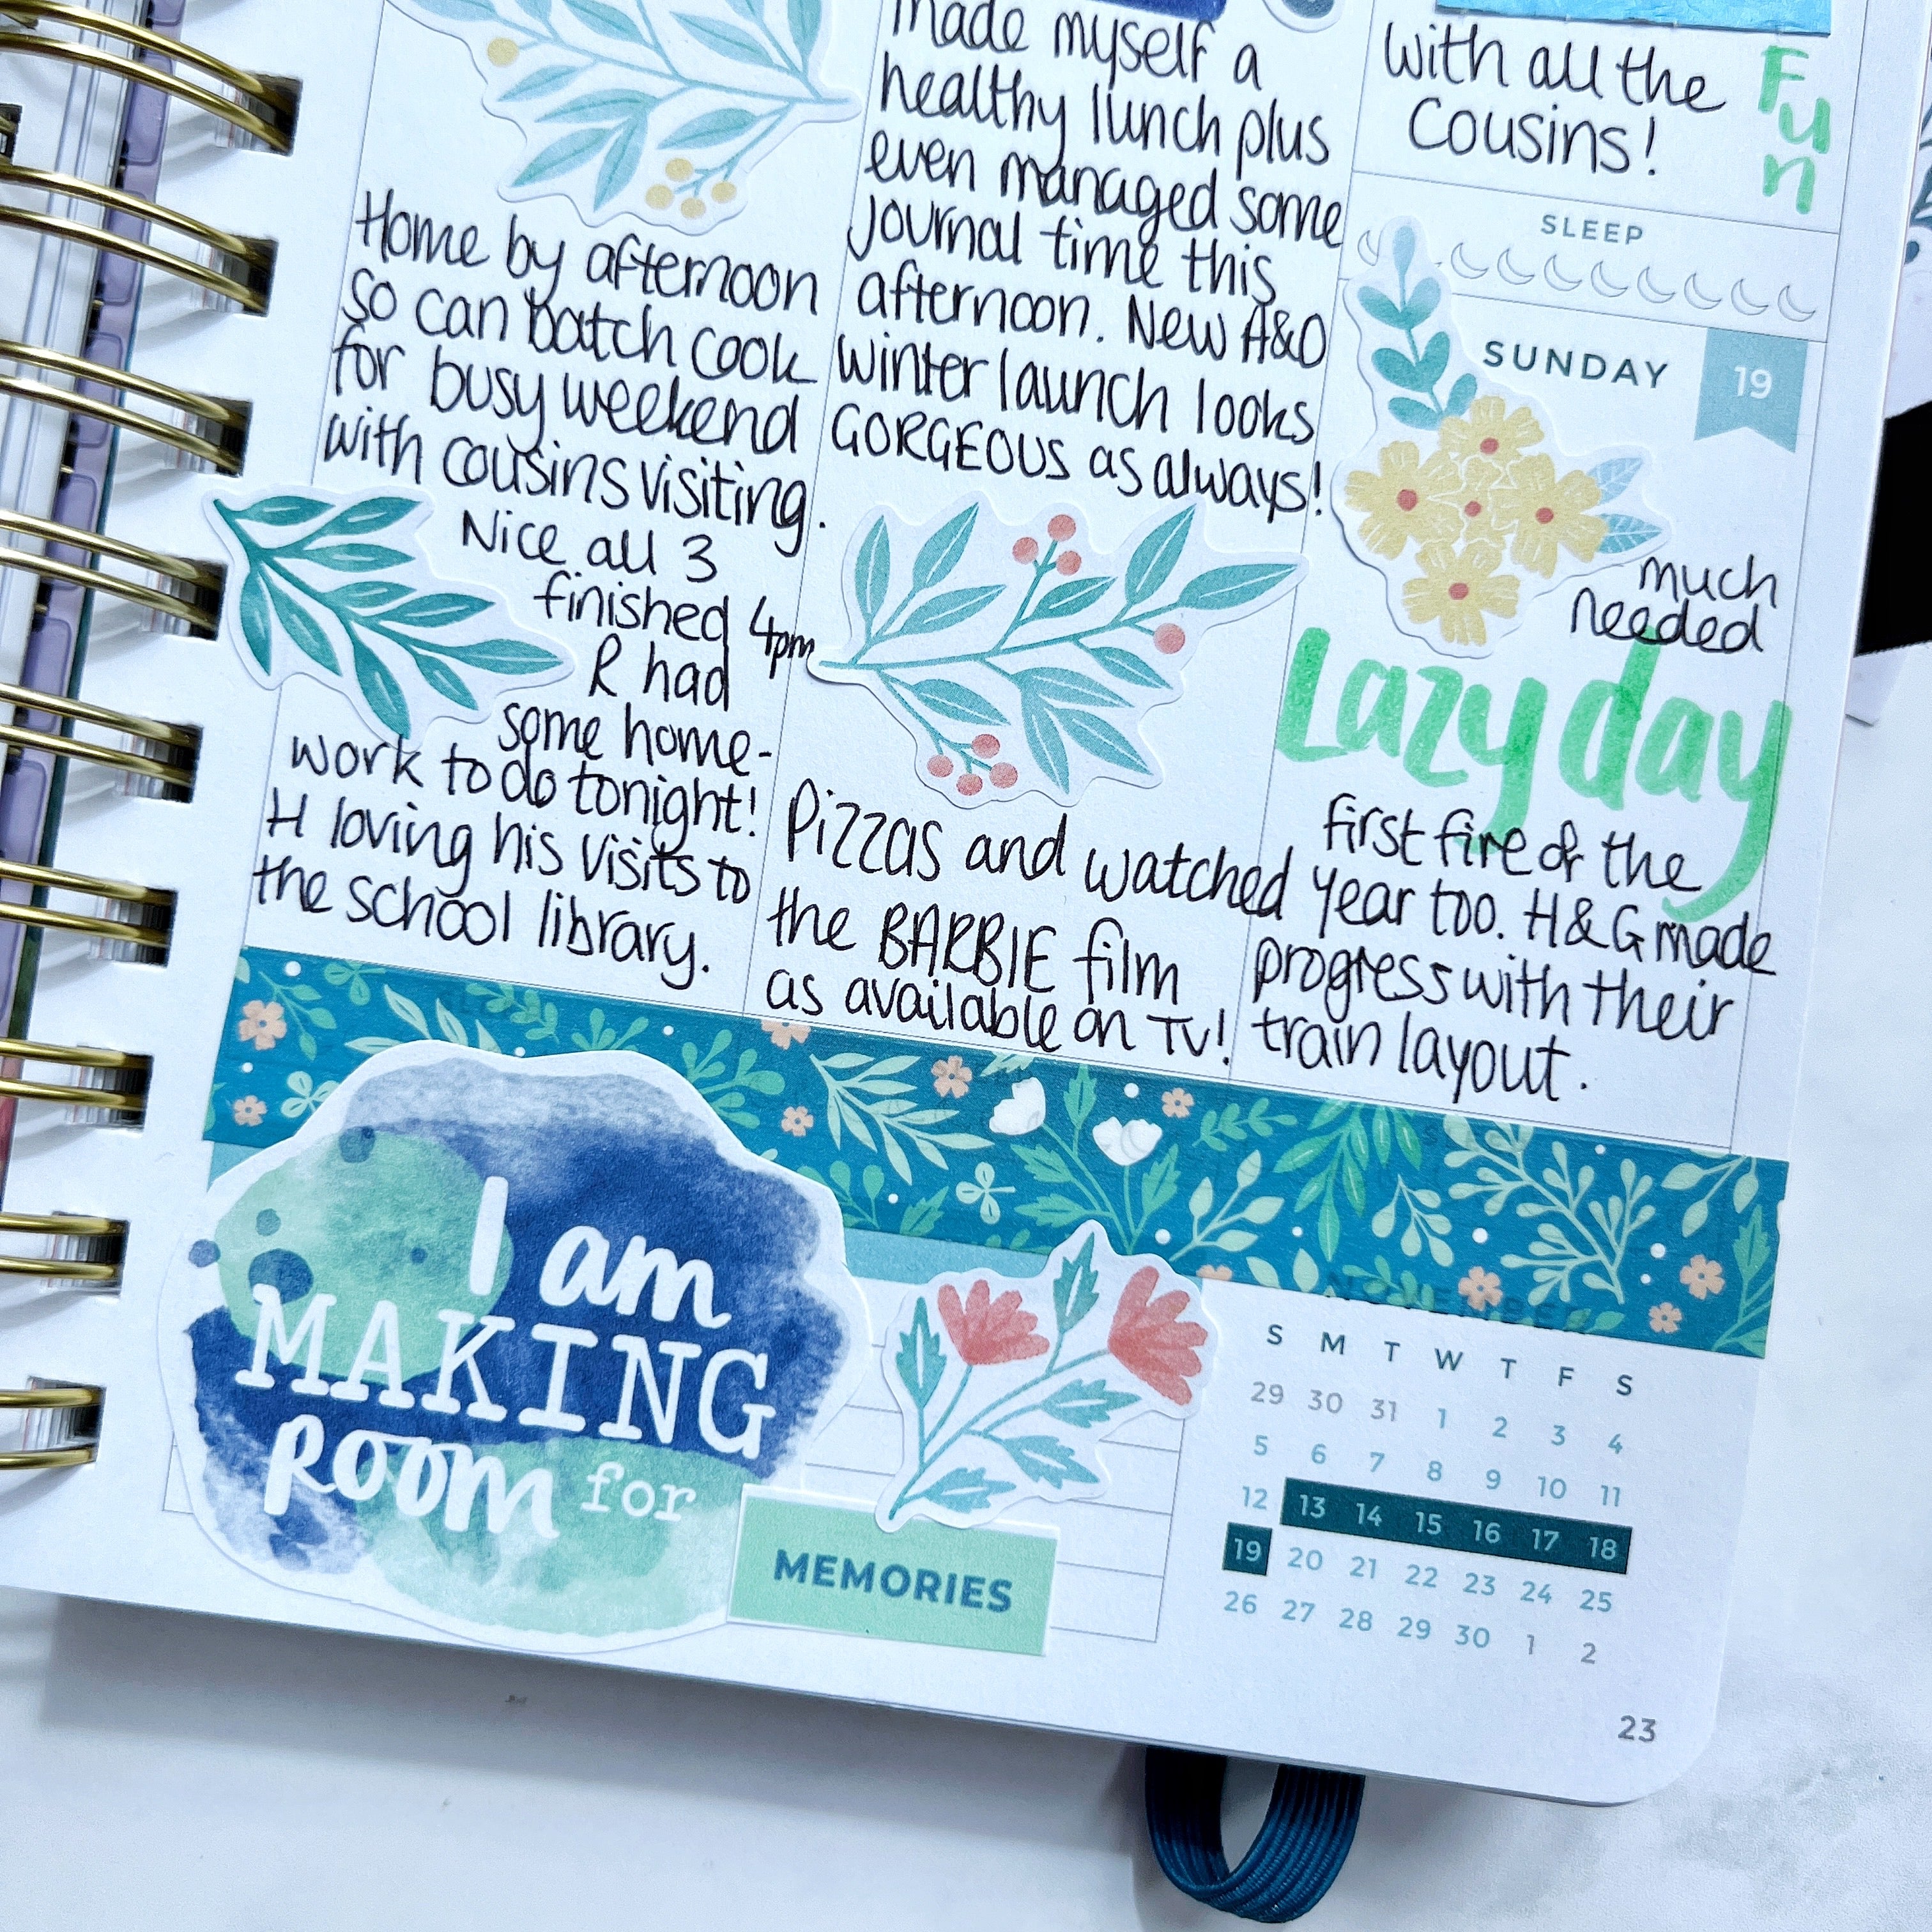 Home by afternoon
so can batch cook
for busy weekend
with cousins visiting.
Nice all 3
finished 4pm
R had
some home-
work to do tonight!
H loving his visits to
the school library.
made myself a
healthy lunch plus
even managed some
journal time this
afternoon. New A&O
winter launch looks
GORGEOUS as always!
Pizzas and watched
the BARBIE film
as available on TV!
with all the
Cousins!
Fun
SLEEP
SUNDAY 19
much
needed
Lazy day
first fire of the
year too. H&G made
progress with their
train layout.
I am
MAKING
ROOM for
MEMORIES
NOVEMBER
S M T W T F S
29 30 31 1 2 3 4
5 6 7 8 9 10 11
12 13 14 15 16 17 18
19 20 21 22 23 24 25
26 27 28 29 30 1 2
23